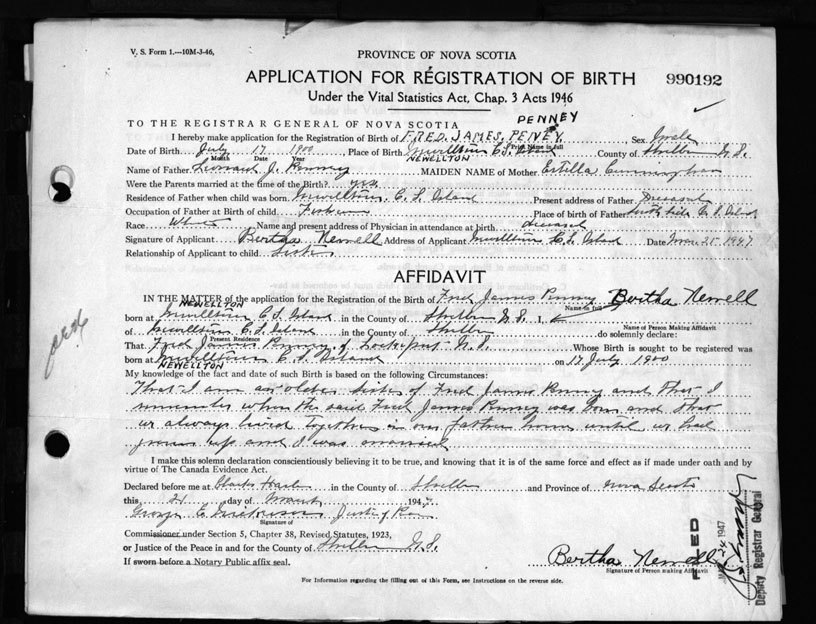 V. S. Form 1.—10M-3-46,
PROVINCE OF NOVA SCOTIA
APPLICATION FOR REGISTRATION OF BIRTH 990192
Under the Vital Statistics Act, Chap. 3 Acts 1946
PENNEY
TO THE REGISTRAR GENERAL OF NOVA SCOTIA
I hereby make application for the Registration of Birth of FRED. JAMES. PENEY. Sex male
Print Name in full
Date of Birth July 17 1900 Place of Birth Newellton C.S. Island County of Shelburne N.S.
Month Date Year NEWELLTON
Name of Father J. Penney MAIDEN NAME of Mother Estilla Cunningham
Were the Parents married at the time of the Birth? yes
Residence of Father when child was born Newellton, C.S. Island Present address of Father Deceased
Occupation of Father at Birth of child Fisherman Place of birth of Father South Side C.S. Island
Race White Name and present address of Physician in attendance at birth deceased
Signature of Applicant Bertha Newell Address of Applicant Newellton C.S. Island Date Mar. 25 1947
Relationship of Applicant to child Sister
AFFIDAVIT
IN THE MATTER of the application for the Registration of the Birth of Fred James Penney Bertha Newell
NEWELLTON Name in full
born at Newellton C.S. Island in the County of Shelburne N.S. I,
Name of Person Making Affidavit
of Newellton C.S. Island in the County of Shelburne do solemnly declare:
Present Residence
That Fred James Penney of Lockeport N.S. Whose Birth is sought to be registered was
born at Newellton C.S. Island on 17 July 1900
NEWELLTON
My knowledge of the fact and date of such Birth is based on the following Circumstances:
That I am an older sister of Fred James Penney and that I
remember when the said Fred James Penney was born and that
we always lived together in our fathers home until we had
grown up and I was married
I make this solemn declaration conscientiously believing it to be true, and knowing that it is of the same force and effect as if made under oath and by
virtue of The Canada Evidence Act.
Declared before me at Clarks Harbor in the County of Shelburne and Province of Nova Scotia
this 21 day of March 1947
George E. Justice of Peace
Signature of
Commissioner under Section 5, Chapter 38, Revised Statutes, 1923,
or Justice of the Peace in and for the County of Shelburne N.S.
If sworn before a Notary Public affix seal.
Bertha Newell
Signature of Person making Affidavit
For Information regarding the filling out of this Form, see Instructions on the reverse side.
FILED
MAR 24 1947
Deputy Registrar General